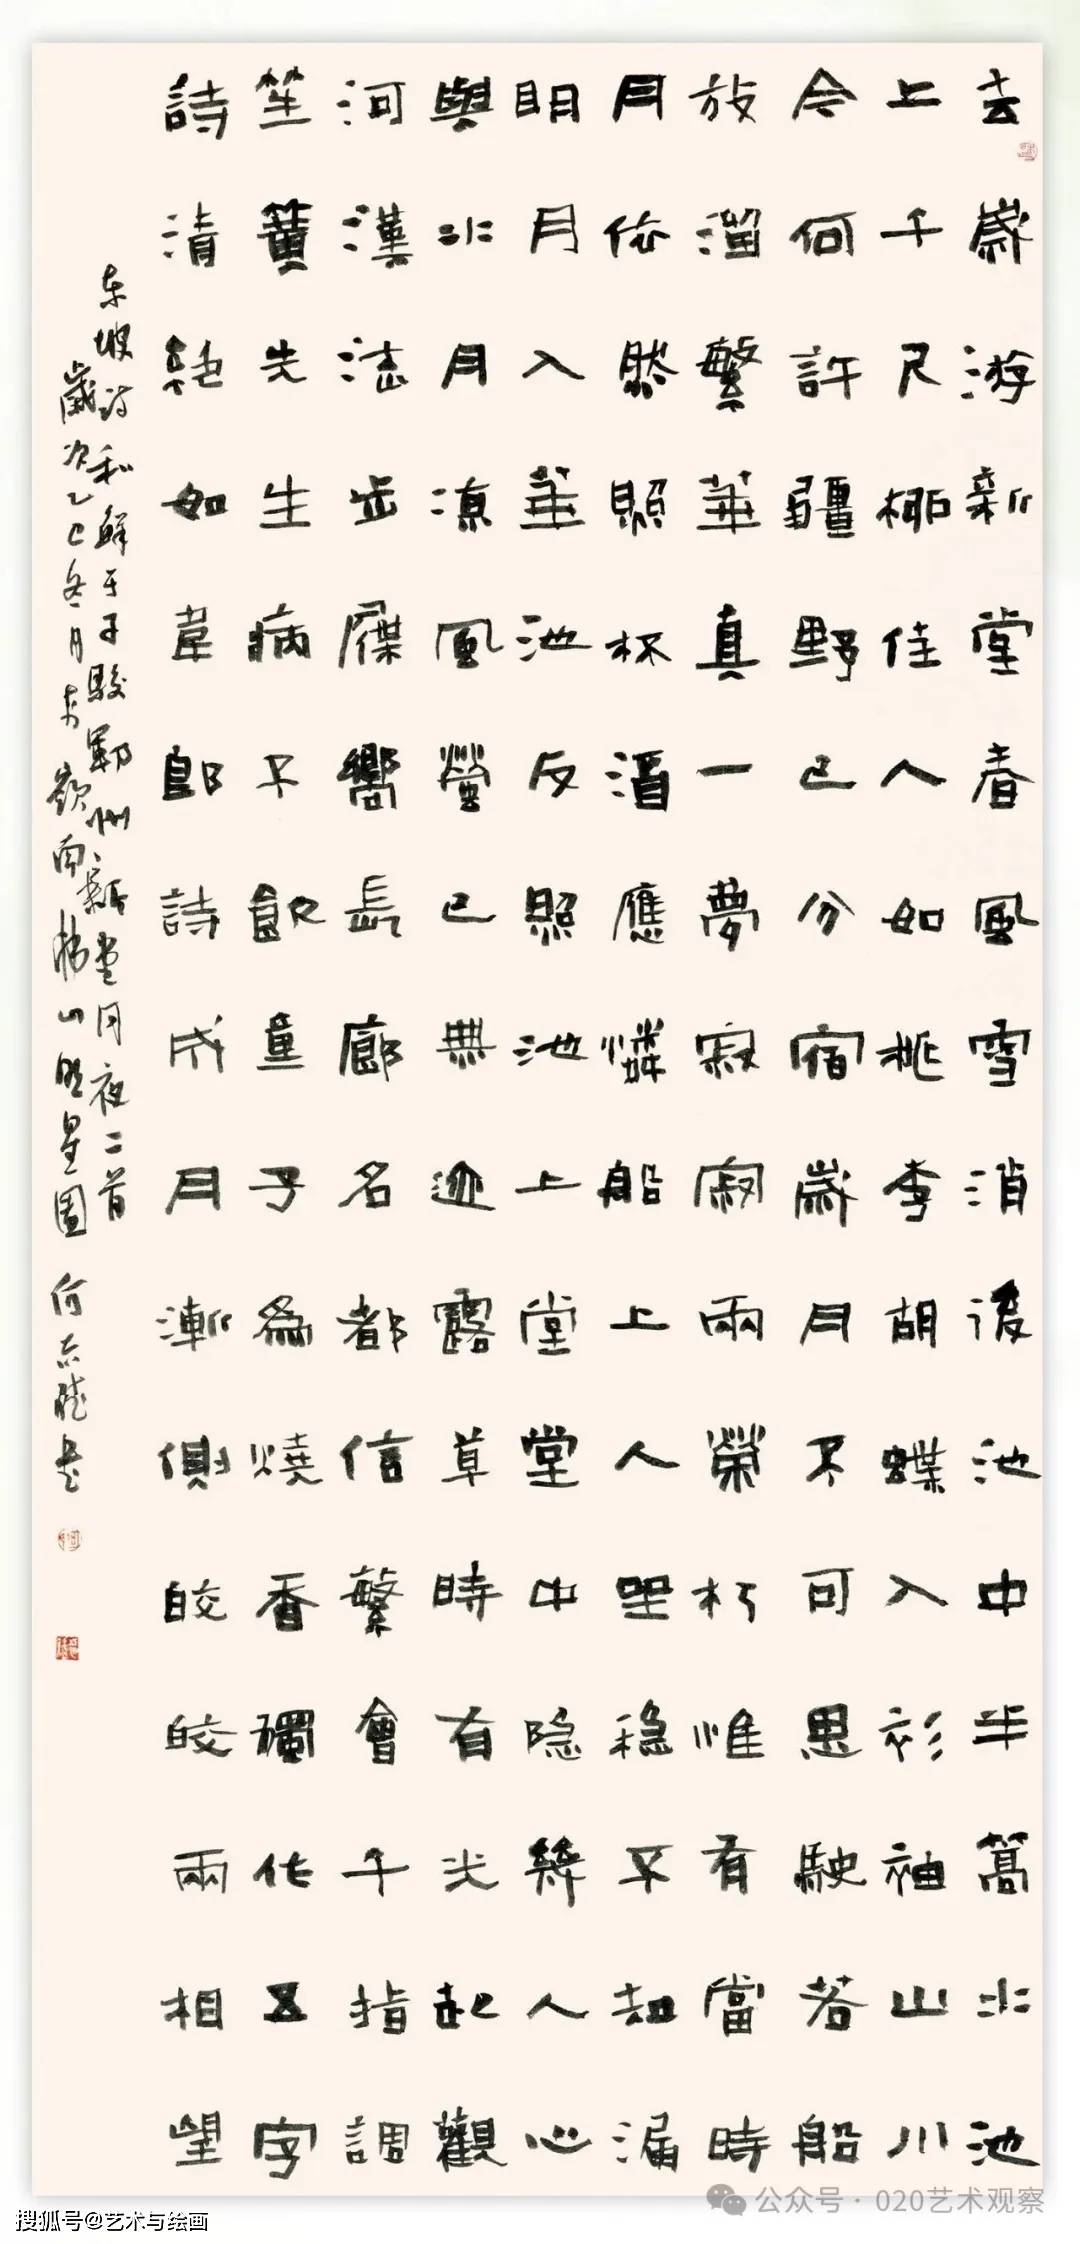 去歲游新堂春風雪消後池中半篙水池
上千尺柳佳人如桃李胡蝶入衫袖山川
今何許疆野已分宿歲月不可思駛若船
放溜繁華真一夢寂寞兩榮朽惟有當時
月依然照杯酒應憐船上人坐穩不知漏
明月入華池反照池上堂堂中隐幾人心
與水月凉風螢已無迹露草時有光起觀
河漢流步屧響長廊名都信繁會千指調
笙簧先生病不飲童子為燒香獨作五字
詩清絕如韋郎詩成月漸側皎皎兩相望
东坡诗和鲜于子骏鄆州新堂月夜二首
歲次乙巳冬月於嶺南山星園何書
搜狐号@艺术与绘画
公众号·020艺术观察